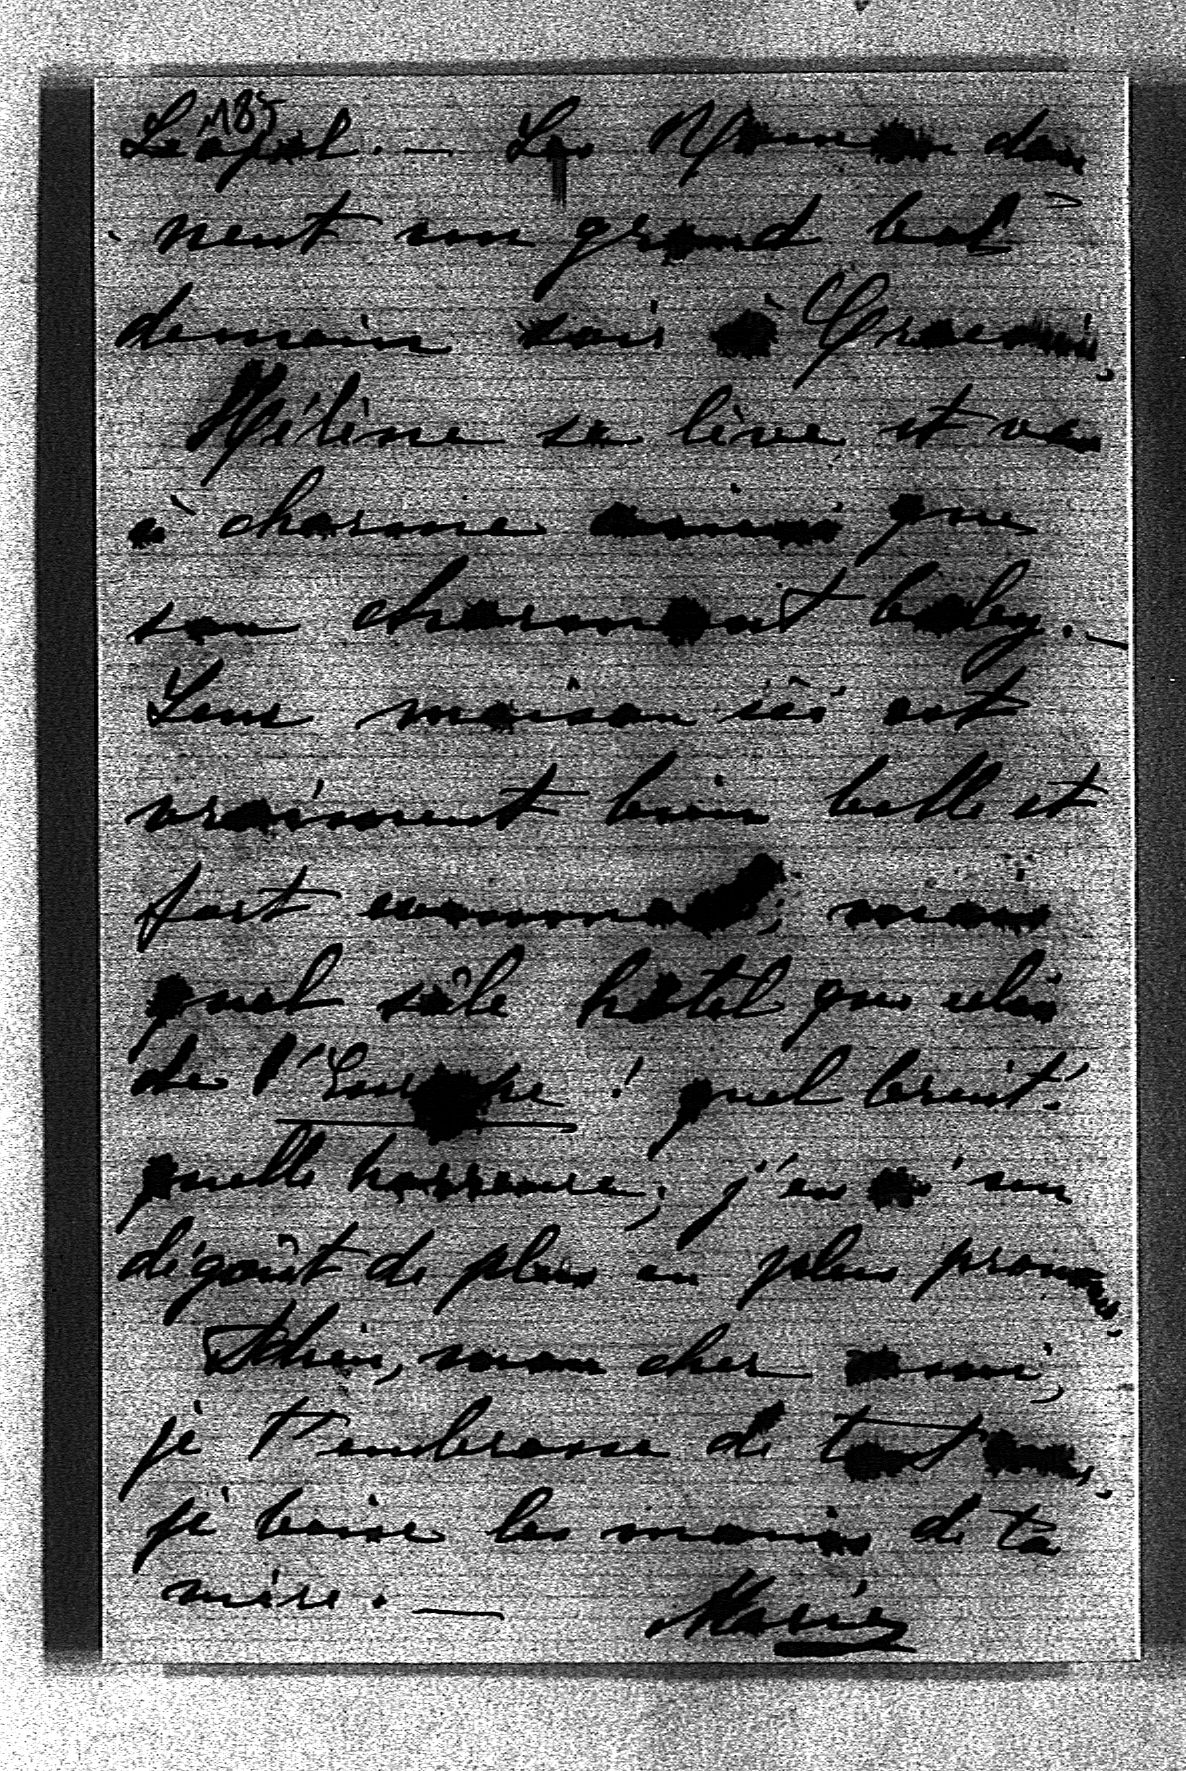 1185
Léopol. — Les don
nent un grand bal
demain soir à
Hélène se lève et va
à charme ainsi que
son charmant baby. —
Leur maison ici est
vraiment bien belle et
fort commode; mais
quel sâle hôtel que celui
de l'Europe! quel bruit!
quelle horreure; j'en ai un
dégoût de plus en plus
Adieu, mon cher ami,
je t'embrasse de tout
je baise les mains de ta
mère. — Marie